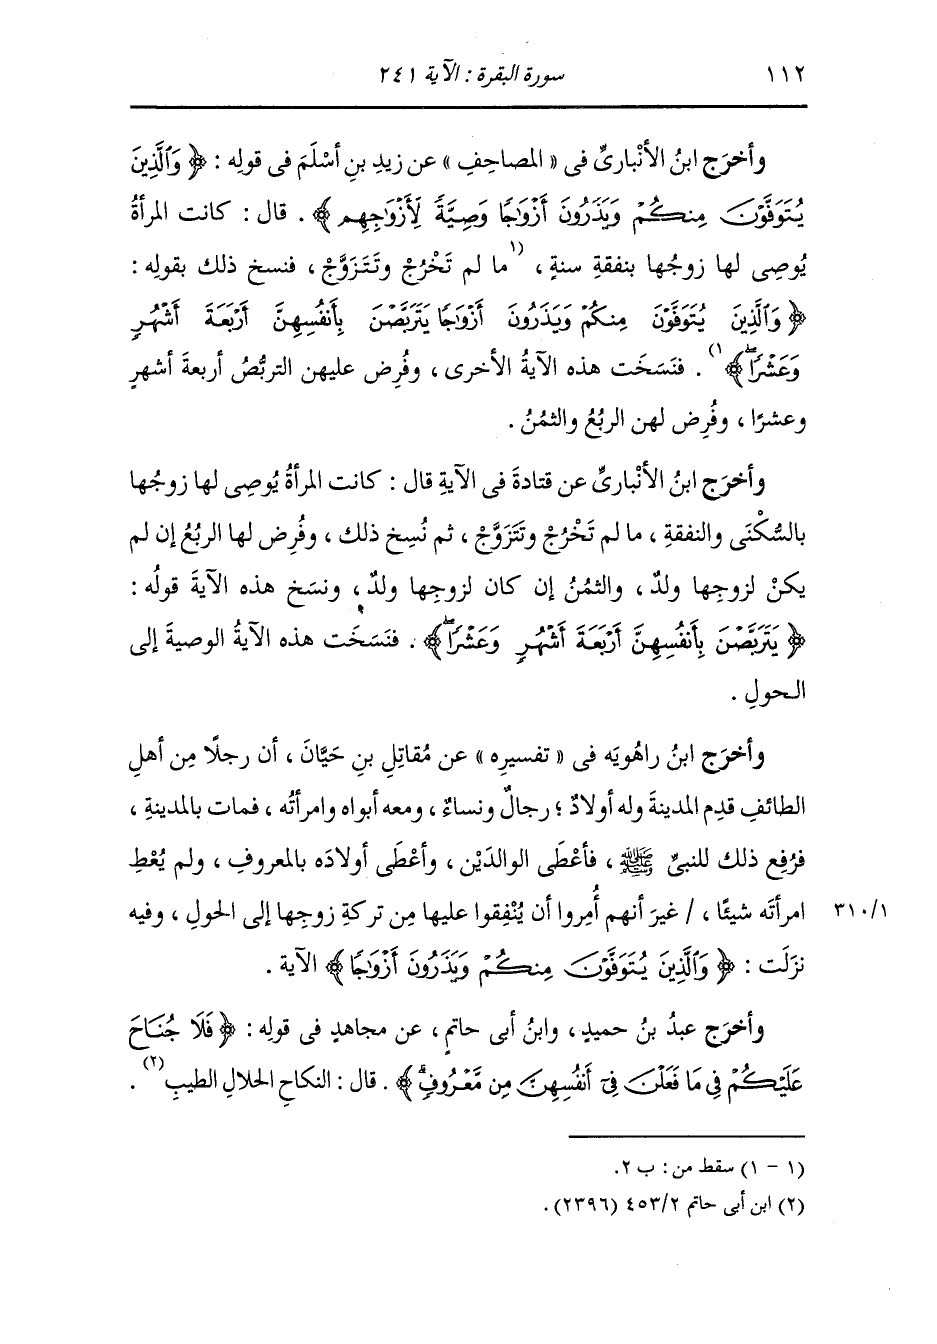 ١١٢ سورة البقرة : الآية ٢٤١
وأخرَج ابنُ الأنْبارىِّ فى « المصاحِفِ » عن زيدِ بنِ أسْلَمَ فى قولِه : ﴿ وَٱلَّذِينَ
يُتَوَفَّوْنَ مِنكُمْ وَيَذَرُونَ أَزْوَٰجًا وَصِيَّةً لِّأَزْوَٰجِهِم ﴾ . قال : كانت المرأةُ
يُوصِى لها زوجُها بنفقةِ سنةٍ ، (١ما لم تَخْرُجْ وتَتَزَوَّجْ ، فنسخ ذلك بقولِه :
﴿ وَٱلَّذِينَ يُتَوَفَّوْنَ مِنكُمْ وَيَذَرُونَ أَزْوَٰجًا يَتَرَبَّصْنَ بِأَنفُسِهِنَّ أَرْبَعَةَ أَشْهُرٍ
وَعَشْرًا ﴾١) . فنَسَخَت هذه الآيةُ الأخرى ، وفُرِض عليهن التربُّصُ أربعةَ أشهرٍ
وعشرًا ، وفُرِض لهن الربُعُ والثمُنُ .
وأخرَج ابنُ الأنْبارىِّ عن قتادةَ فى الآيةِ قال : كانت المرأةُ يُوصِى لها زوجُها
بالسُّكْنَى والنفقةِ ، ما لم تَخْرُجْ وتَتَزَوَّجْ ، ثم نُسِخ ذلك ، وفُرِض لها الربُعُ إن لم
يكنْ لزوجِها ولدٌ ، والثمُنُ إن كان لزوجِها ولدٌ ، ونسَخ هذه الآيةَ قولُه :
﴿ يَتَرَبَّصْنَ بِأَنفُسِهِنَّ أَرْبَعَةَ أَشْهُرٍ وَعَشْرًا ﴾ . فنَسَخَت هذه الآيةُ الوصيةَ إلى
الحولِ .
وأخرَج ابنُ راهُويَه فى « تفسيرِه » عن مُقاتِلِ بنِ حَيَّانَ ، أن رجلًا مِن أهلِ
الطائفِ قدِم المدينةَ وله أولادٌ ؛ رجالٌ ونساءٌ ، ومعه أبواه وامرأتُه ، فمات بالمدينةِ ،
فرُفِع ذلك للنبىِّ ﷺ ، فأعْطَى الوالدَيْن ، وأعْطَى أولادَه بالمعروفِ ، ولم يُعْطِ
امرأتَه شيئًا ، / غيرَ أنهم أُمِروا أن يُنْفِقوا عليها مِن تركةِ زوجِها إلى الحولِ ، وفيه ٣١٠/١
نزلَت : ﴿ وَٱلَّذِينَ يُتَوَفَّوْنَ مِنكُمْ وَيَذَرُونَ أَزْوَٰجًا ﴾ الآية .
وأخرَج عبدُ بنُ حميدٍ ، وابنُ أبى حاتمٍ ، عن مجاهدٍ فى قولِه : ﴿ فَلَا جُنَاحَ
عَلَيْكُمْ فِى مَا فَعَلْنَ فِىٓ أَنفُسِهِنَّ مِن مَّعْرُوفٍ ﴾ . قال : النكاح الحلال الطيب(٢) .
(١ - ١) سقط من : ب ٢.
(٢) ابن أبى حاتم ٤٥٣/٢ (٢٣٩٦) .